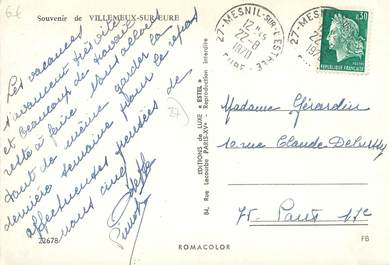 Souvenir de VILLEMEUX-SUR-EURE
Les vacances
s'avancent très vite
et beaucoup de travail
reste à faire. Nous allons
tout de même garder la
dernière semaine pour le repos
affectueuses pensées de
nous cinq
22678
ÉDITIONS de LUXE « ESTEL »
84, Rue Lecourbe PARIS-XVe
Reproduction Interdite
27-MESNIL-SUR-L'ESTRÉE
12 H 45
22-8
1970
EURE
27-MESNIL-
0,30
RÉPUBLIQUE FRANÇAISE
Madame Gérardin
12 rue Claude Debussy
75- Paris 17e
ROMACOLOR
FB